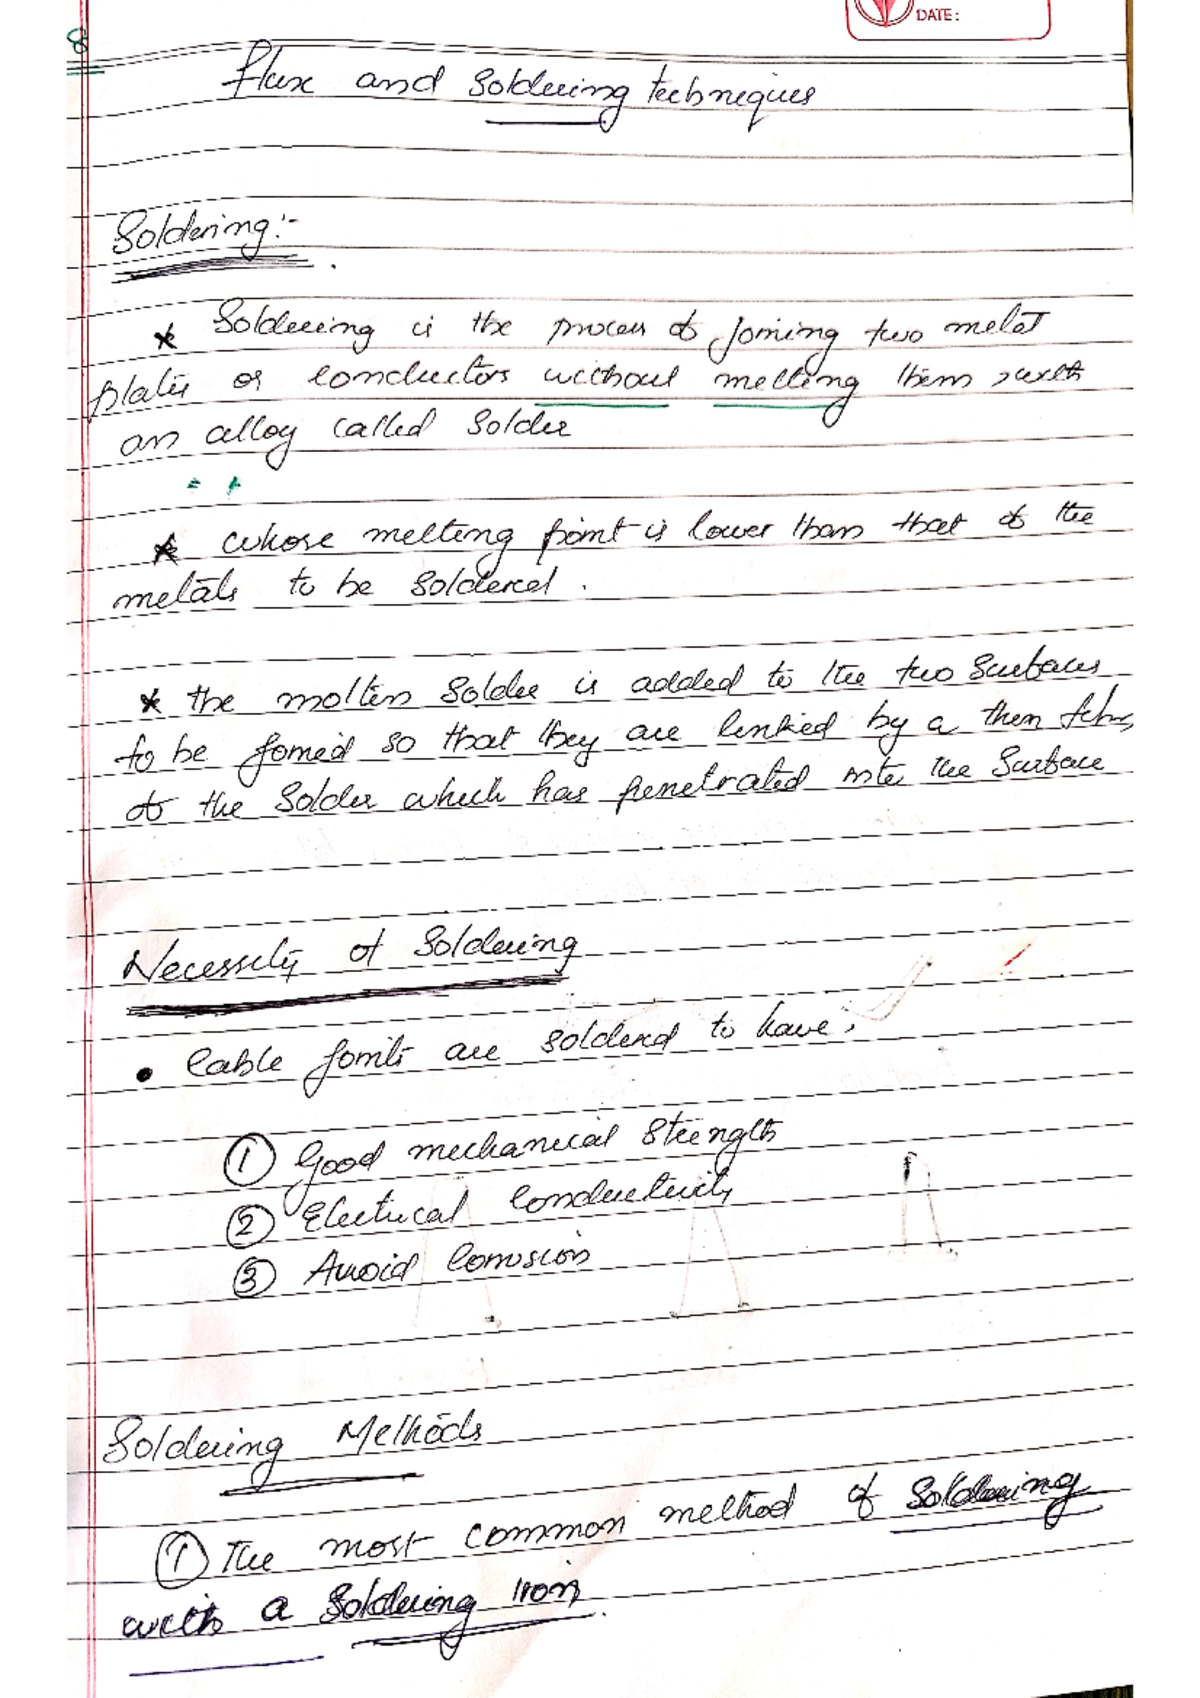 DATE:
8
Flux and Soldering techniques
Soldering:-
* Soldering is the process of joining two metal
plates or conductors without melting them with
an alloy called Solder
* whose melting point is lower than that of the
metals to be Soldered.
* the molten Solder is added to the two Surfaces
to be joined so that they are linked by a thin film
of the Solder which has penetrated into the Surface
Necessity of Soldering
• Cable joints are soldered to have,
① Good mechanical Strength
② Electrical Conductivity
③ Avoid Corrosion
Soldering Methods
① The most common method of Soldering
with a Soldering Iron.